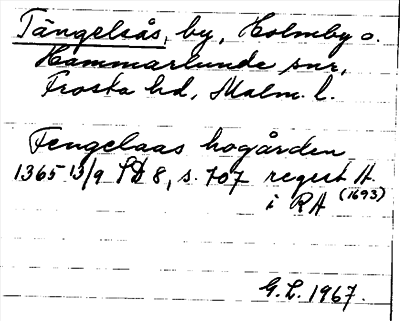 Tängelsås, by, Holmby o.
Hammarlunda snr,
Frosta hd, Malm. l.
Fengelaas hogården
1365 13/9 SD 8, s. 707 regest A
i RA (1693)
G.L. 1967.